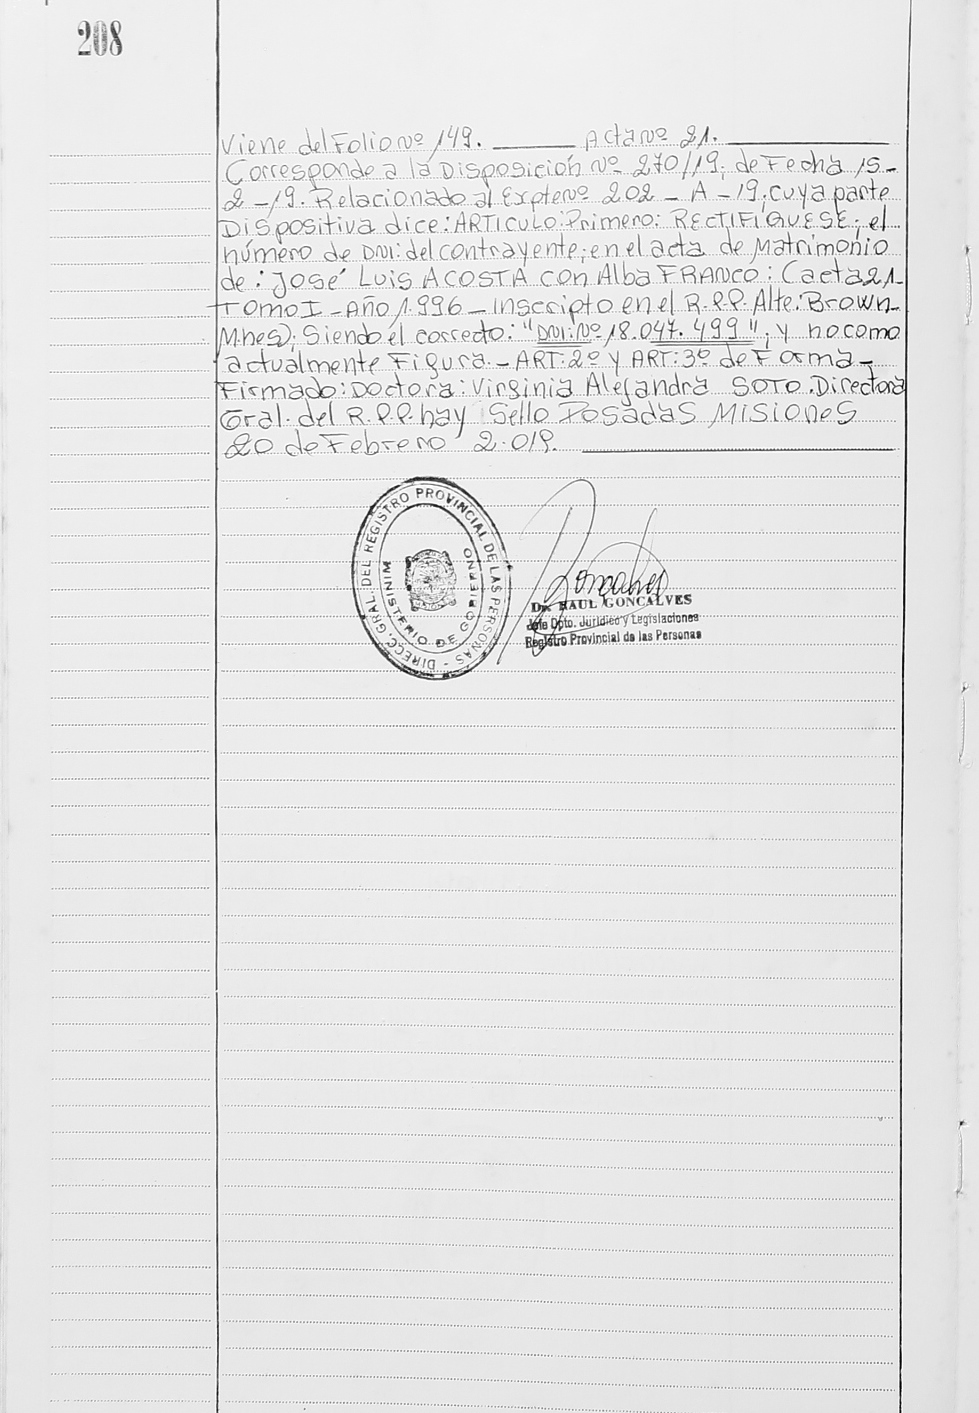 208
Viene del Folio nº 149. Acta nº 21.
Corresponde a la Disposición Nº 270/19; de Fecha 15-
2-19. Relacionado al Expte nº 202 - A - 19; cuya parte
Dispositiva dice: ARTICULO: Primero: RECTIFIQUESE; el
número de DNI: del contrayente; en el acta de Matrimonio
de: José Luis ACOSTA con Alba FRANCO: (acta 21-
TOMO I - Año 1.996 - Inscripto en el R.P.P. Alte: Brown-
Mnes); Siendo el correcto: "DNI: Nº 18.047.499"; y no como
actualmente Figura. - ART: 2º y ART: 3º de Forma -
Firmado: Doctora: Virginia Alejandra SOTO. Directora
Gral. del R.P.P. hay Sello POSADAS MISIONES
20 de Febrero 2.019.
DIRECC. GRAL. DEL REGISTRO PROVINCIAL DE LAS PERSONAS -
MINISTERIO DE GOBIERNO
Dr. RAUL GONCALVES
Jefe Dpto. Jurídico y Legislaciones
Registro Provincial de las Personas